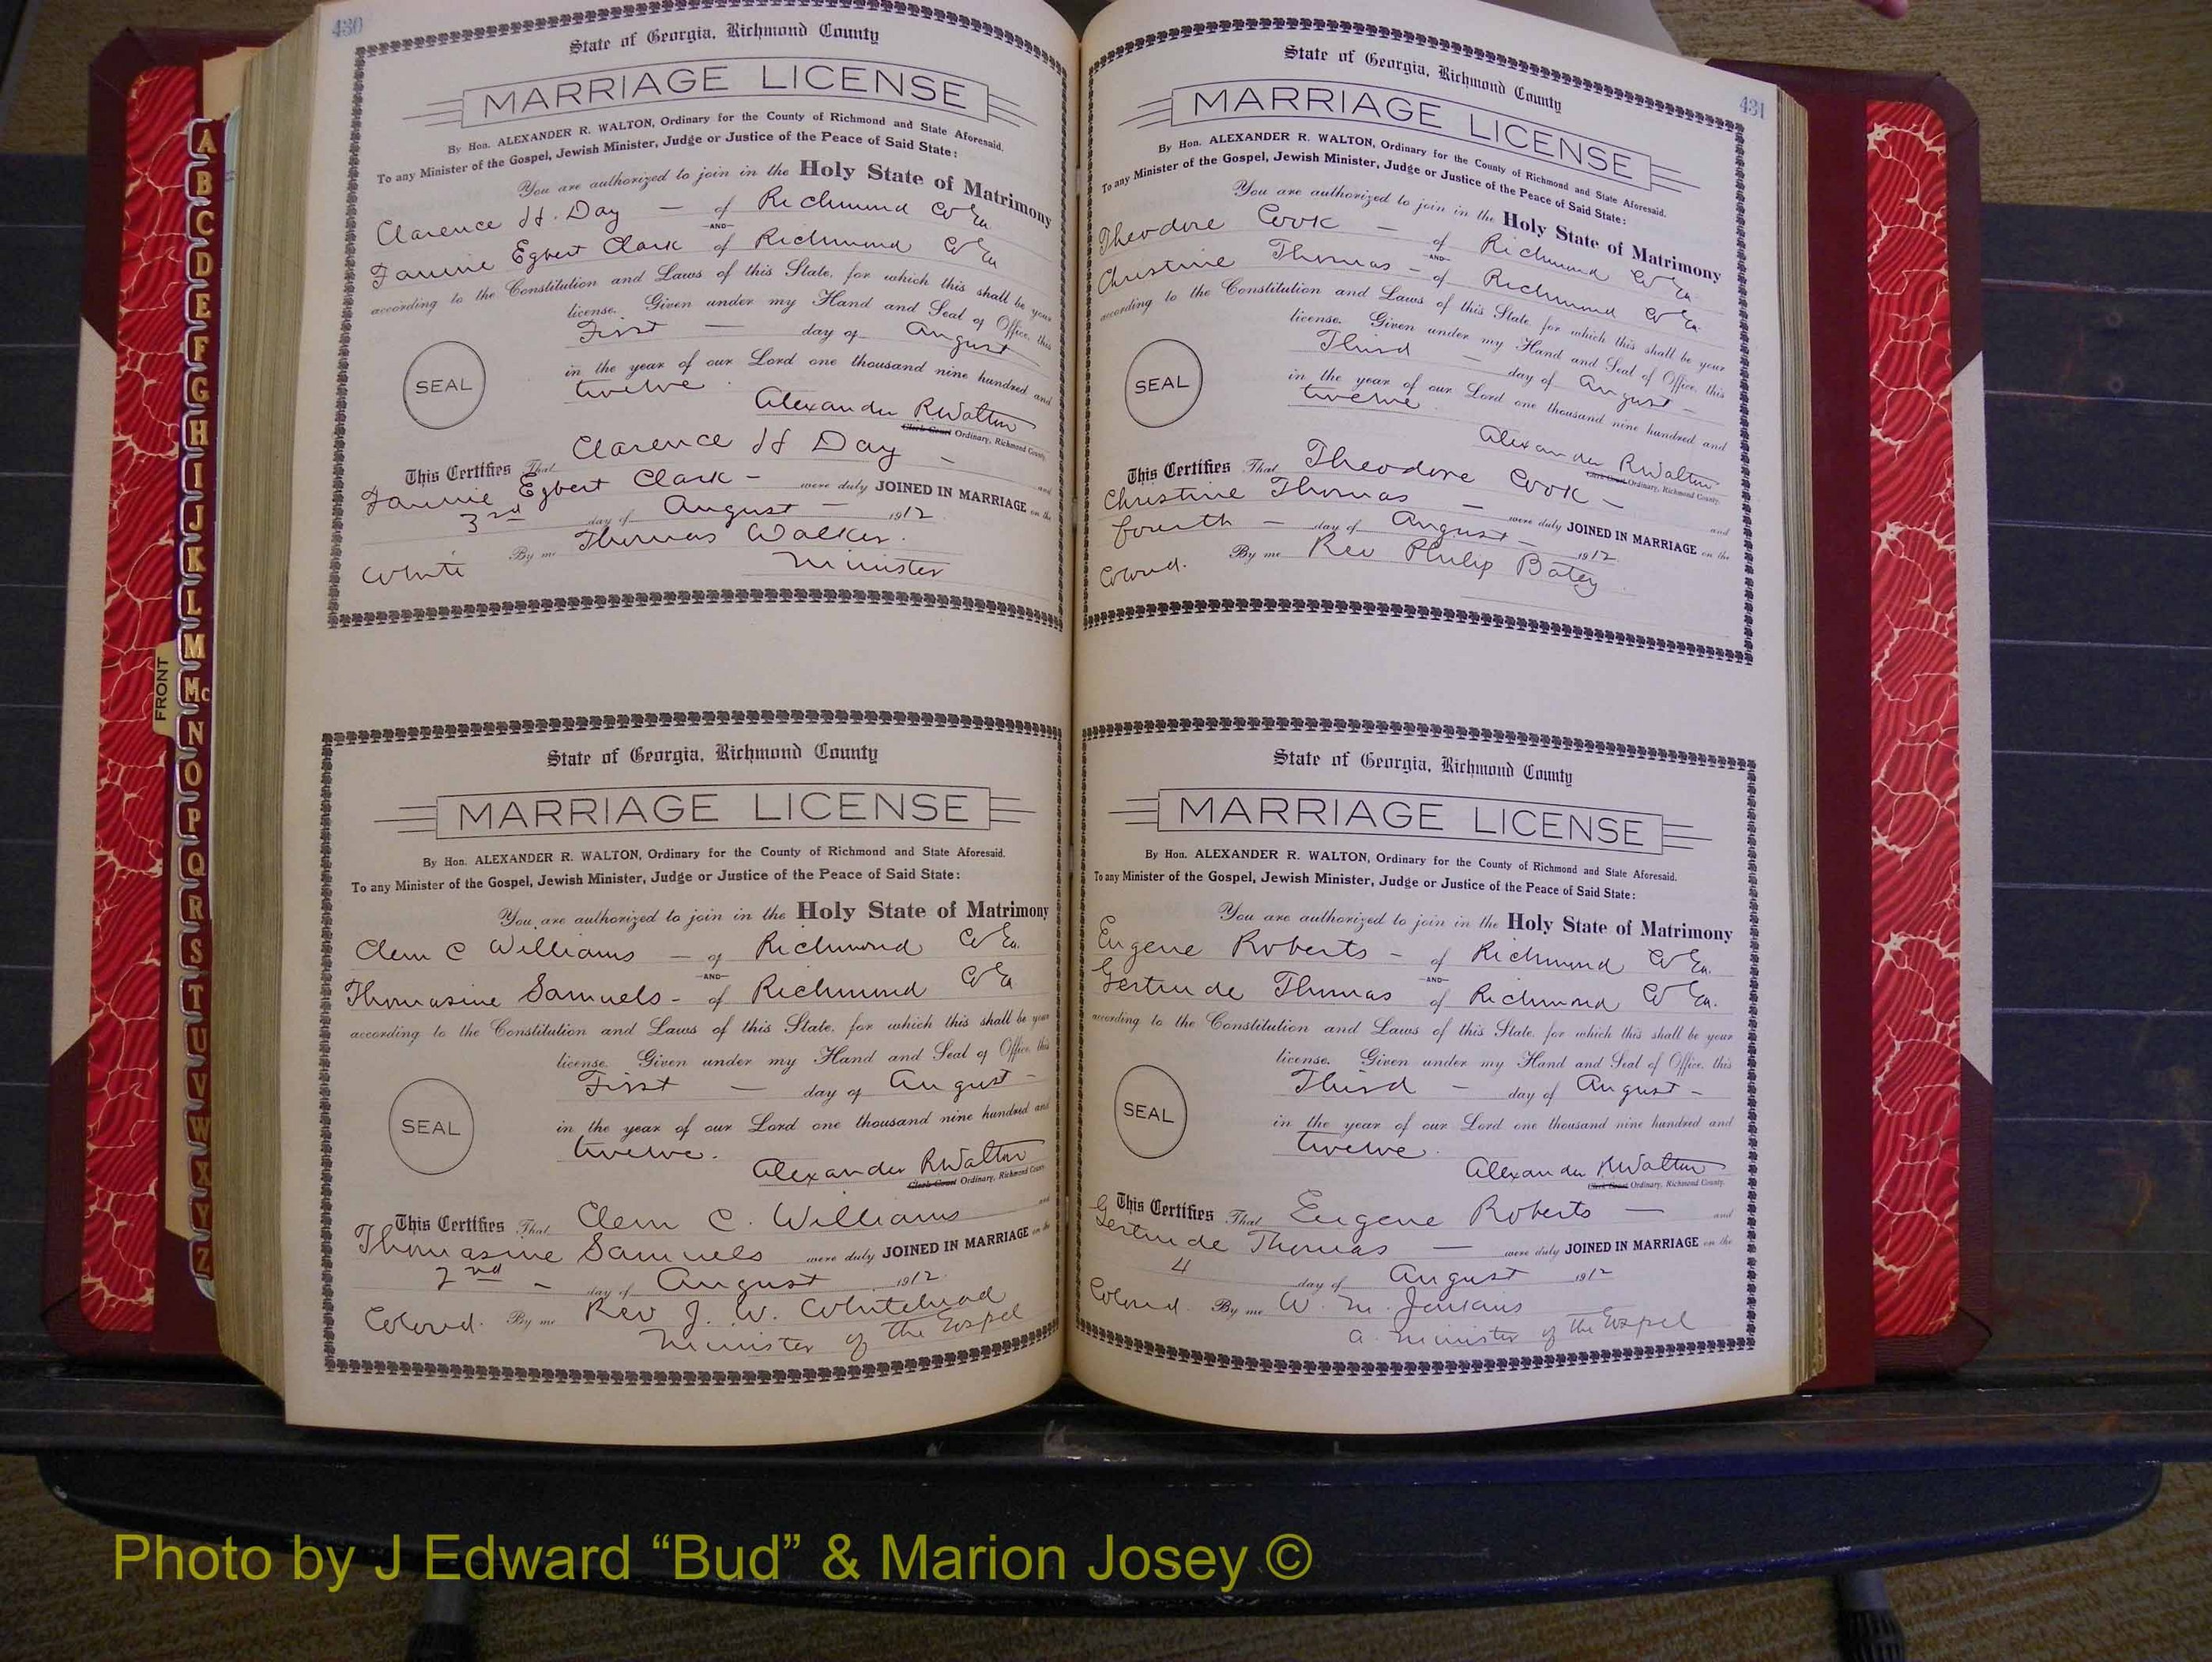 430
State of Georgia, Richmond County
MARRIAGE LICENSE
By Hon. ALEXANDER R. WALTON, Ordinary for the County of Richmond and State Aforesaid.
To any Minister of the Gospel, Jewish Minister, Judge or Justice of the Peace of Said State:
You are authorized to join in the Holy State of Matrimony
Clarence H. Day — of Richmond Co Ga.
AND
Fannie Egbert Clark of Richmond Co Ga
according to the Constitution and Laws of this State, for which this shall be your
license. Given under my Hand and Seal of Office, this
First — day of August
in the year of our Lord one thousand nine hundred and
twelve.
SEAL
Alexander R Walton
Clerk Court Ordinary, Richmond County.
This Certifies That Clarence H Day — and
Fannie Egbert Clark — were duly JOINED IN MARRIAGE on the
3rd day of August — 1912
By me Thomas Walker.
White Minister
State of Georgia, Richmond County
MARRIAGE LICENSE
By Hon. ALEXANDER R. WALTON, Ordinary for the County of Richmond and State Aforesaid.
To any Minister of the Gospel, Jewish Minister, Judge or Justice of the Peace of Said State:
You are authorized to join in the Holy State of Matrimony
Clem C Williams — of Richmond Co Ga.
AND
Thomasine Samuels - of Richmond Co Ga
according to the Constitution and Laws of this State, for which this shall be your
license. Given under my Hand and Seal of Office, this
First — day of August -
in the year of our Lord one thousand nine hundred and
twelve.
SEAL
Alexander R Walton
Clerk Court Ordinary, Richmond County
This Certifies That Clem C. Williams and
Thomasine Samuels were duly JOINED IN MARRIAGE on the
2nd - day of August 1912
Colored. By me Rev J. W. Whitehead
Minister of the Gospel
431
State of Georgia, Richmond County
MARRIAGE LICENSE
By Hon. ALEXANDER R. WALTON, Ordinary for the County of Richmond and State Aforesaid.
To any Minister of the Gospel, Jewish Minister, Judge or Justice of the Peace of Said State:
You are authorized to join in the Holy State of Matrimony
Theodore Cook — of Richmond Co Ga
AND
Christine Thomas - of Richmond Co Ga.
according to the Constitution and Laws of this State, for which this shall be your
license. Given under my Hand and Seal of Office, this
Third — day of August -
in the year of our Lord one thousand nine hundred and
twelve.
SEAL
Alexander R Walton
Clerk Court Ordinary, Richmond County.
This Certifies That Theodore Cook — and
Christine Thomas — were duly JOINED IN MARRIAGE on the
fourth — day of August - 1912
Colored. By me Rev Philip Batey
State of Georgia, Richmond County
MARRIAGE LICENSE
By Hon. ALEXANDER R. WALTON, Ordinary for the County of Richmond and State Aforesaid.
To any Minister of the Gospel, Jewish Minister, Judge or Justice of the Peace of Said State:
You are authorized to join in the Holy State of Matrimony
Eugene Roberts - of Richmond Co Ga.
AND
Gertrude Thomas of Richmond Co Ga.
according to the Constitution and Laws of this State, for which this shall be your
license. Given under my Hand and Seal of Office, this
Third — day of August -
in the year of our Lord one thousand nine hundred and
twelve.
SEAL
Alexander R Walton
Clerk Court Ordinary, Richmond County.
This Certifies That Eugene Roberts — and
Gertrude Thomas — were duly JOINED IN MARRIAGE on the
4 day of August 1912
Colored. By me W. M. Jenkins
a minister of the Gospel
A
B
C
D
E
F
G
H
I
J
K
L
M
Mc
N
O
P
Q
R
S
T
U
V
W
X
Y
Z
FRONT
Photo by J Edward “Bud” & Marion Josey ©